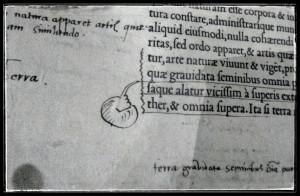 natura apparet artis quæ
dam similitudo.
terra
naturam aut elle corpora & in
tura constare, administrarique mun
aliquid eiusmodi, nulla cohærendi
ritas, sed ordo apparet, & artis quæ
tur, arte naturæ viuunt & viget, pr
quæ grauidata seminibus omnia p
saque alatur vicissim à superis ext
ther, & omnia supera. Ita si terra
terra gravidata seminibus